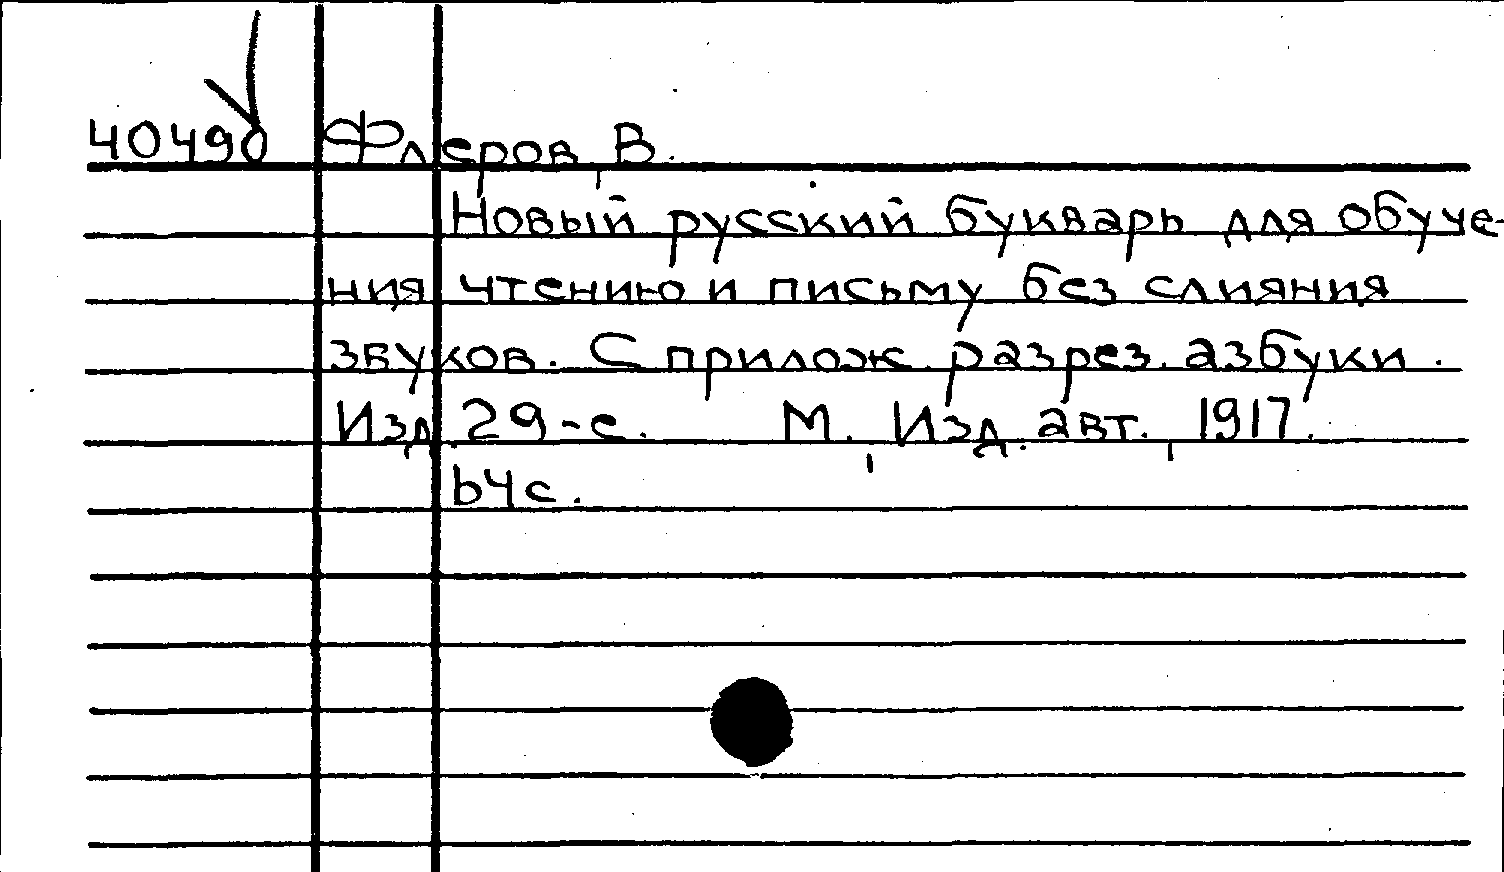 40490 Флеров, В.
Новый русский букварь для обуче-
ния чтению и письму без слияния
звуков. С прилож. разрез. азбуки.
Изд. 29-е. М., Изд. авт., 1917.
64с.